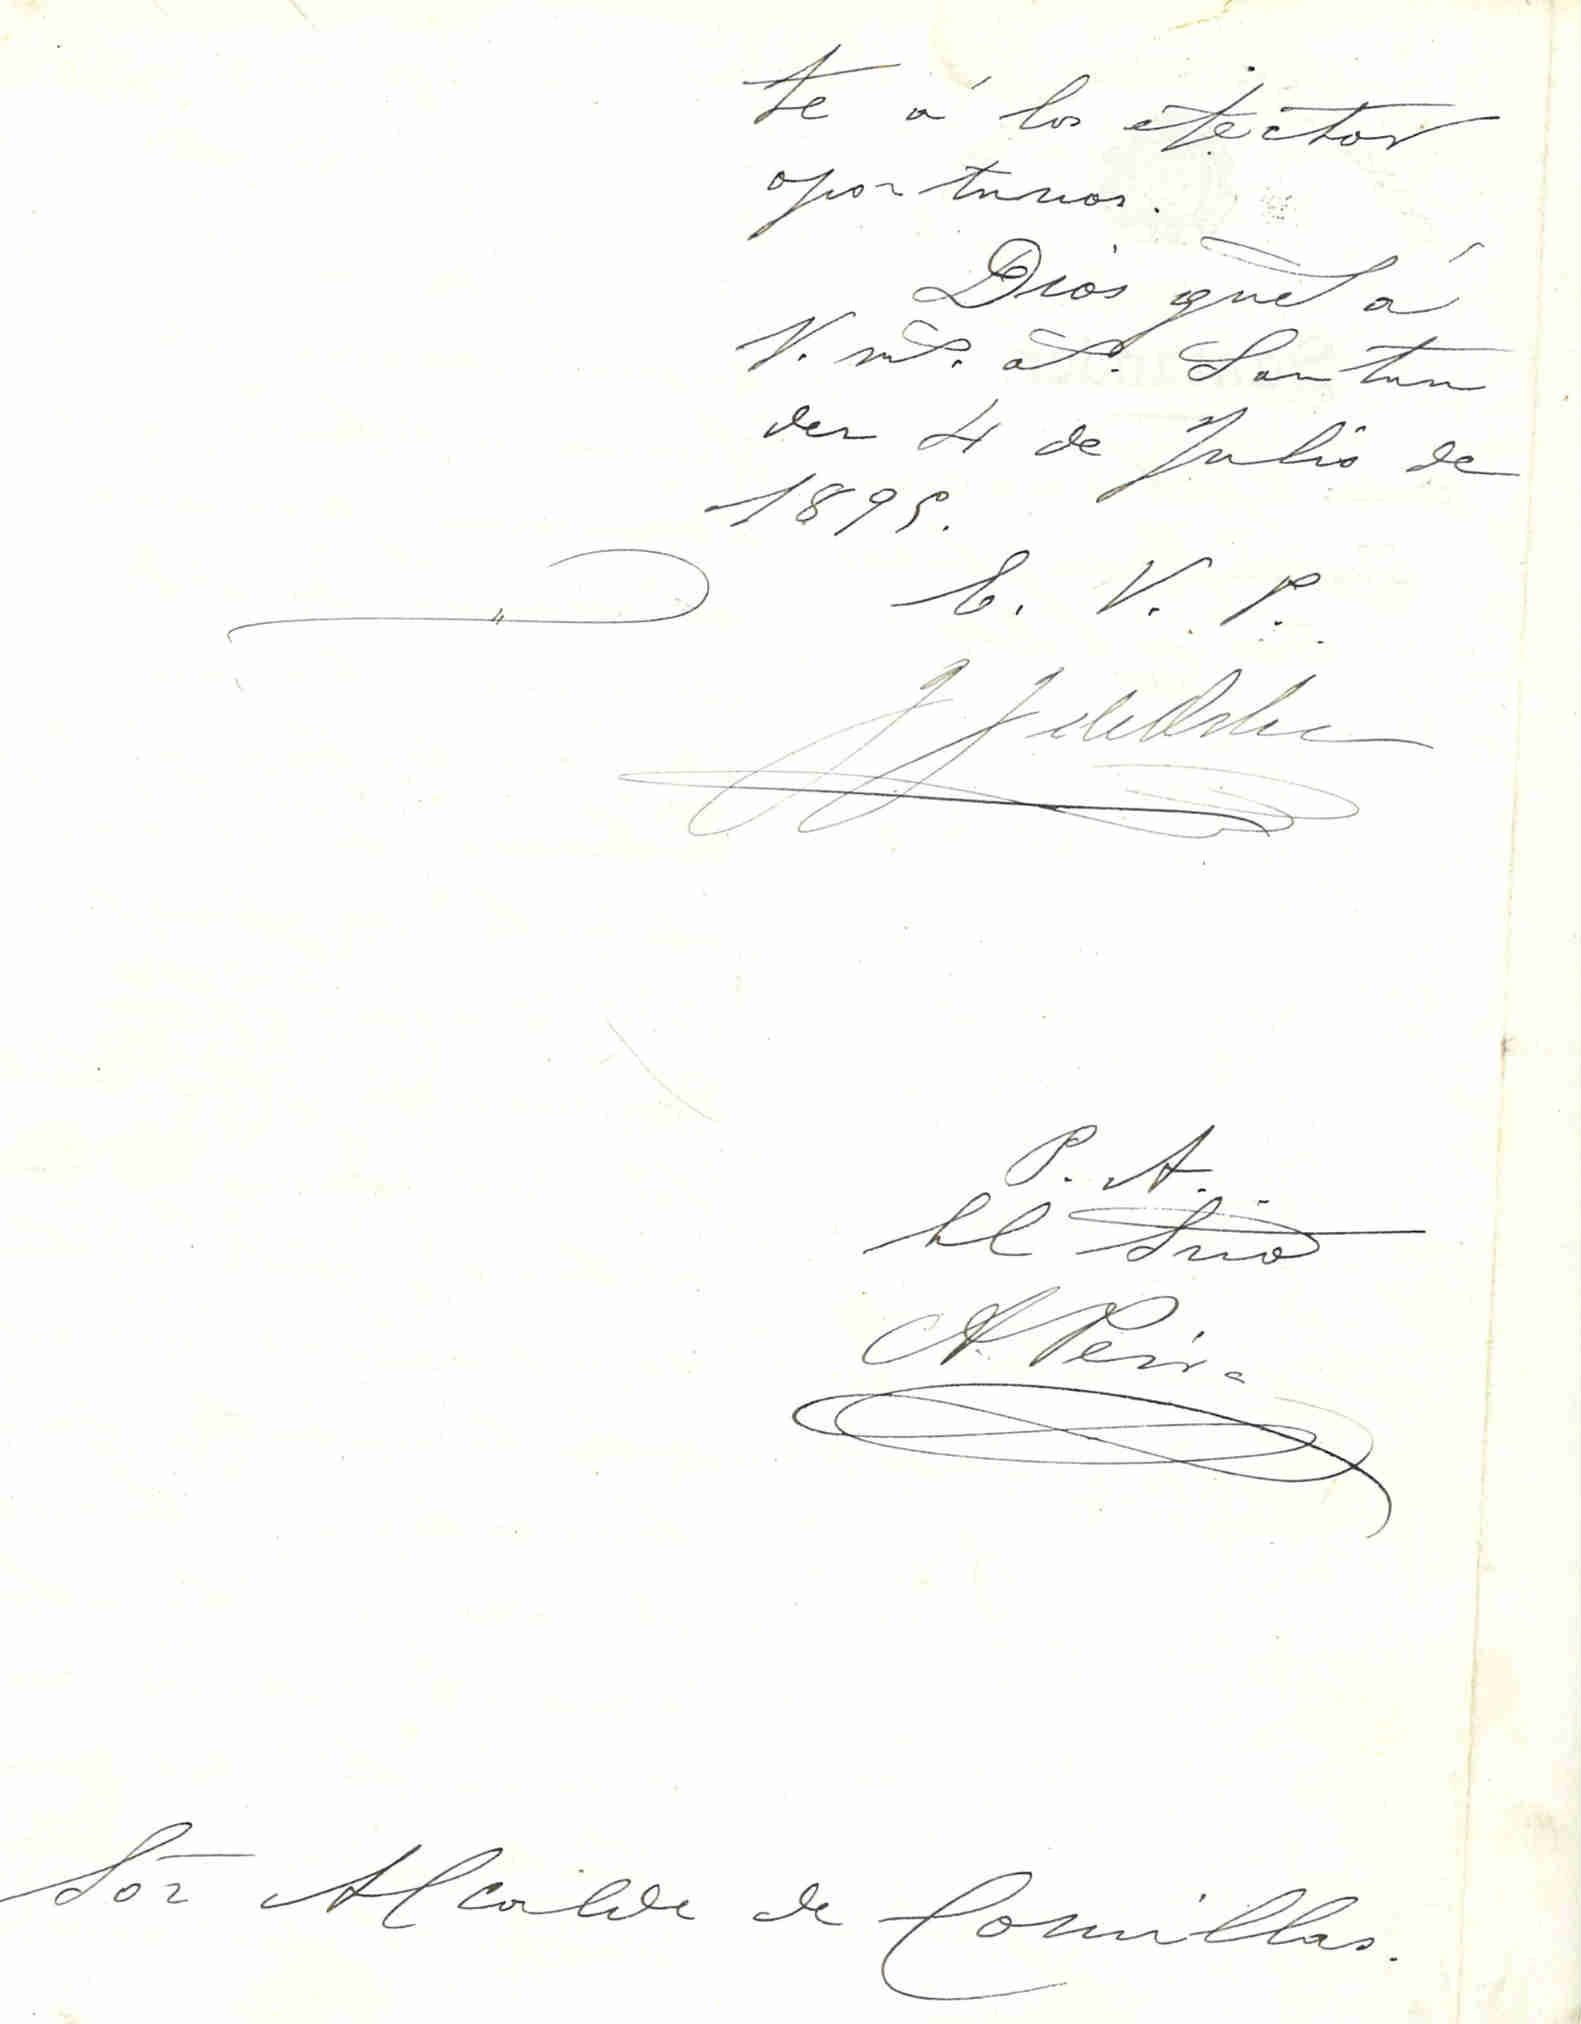 te á los efectos
oportunos.
Dios gue á
V. ms. as. Santan
der 4 de Julio de
1895.
E. V. P.
P. A.
El Srio
A. Peira
Sor Alcalde de Comillas.